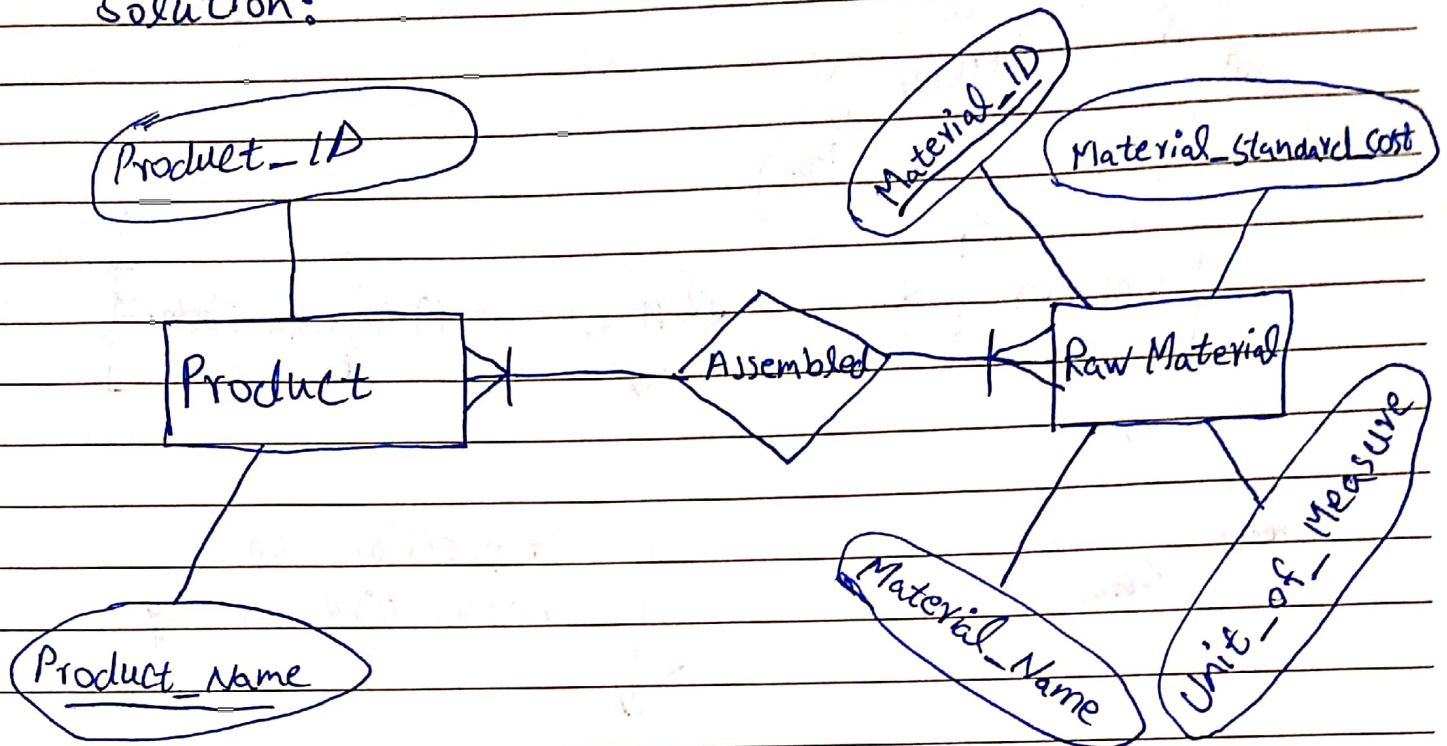 Solution:
Product_ID
Material_ID
Material_Standard_Cost
Product
Assembled
Raw Material
Product_Name
Material_Name
Unit_of_Measure